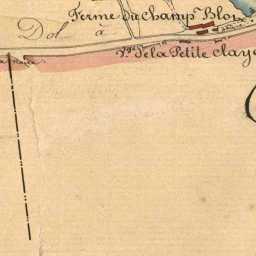 Ferme du Champ Bloi
Dol à
Vge de la Petite Claye